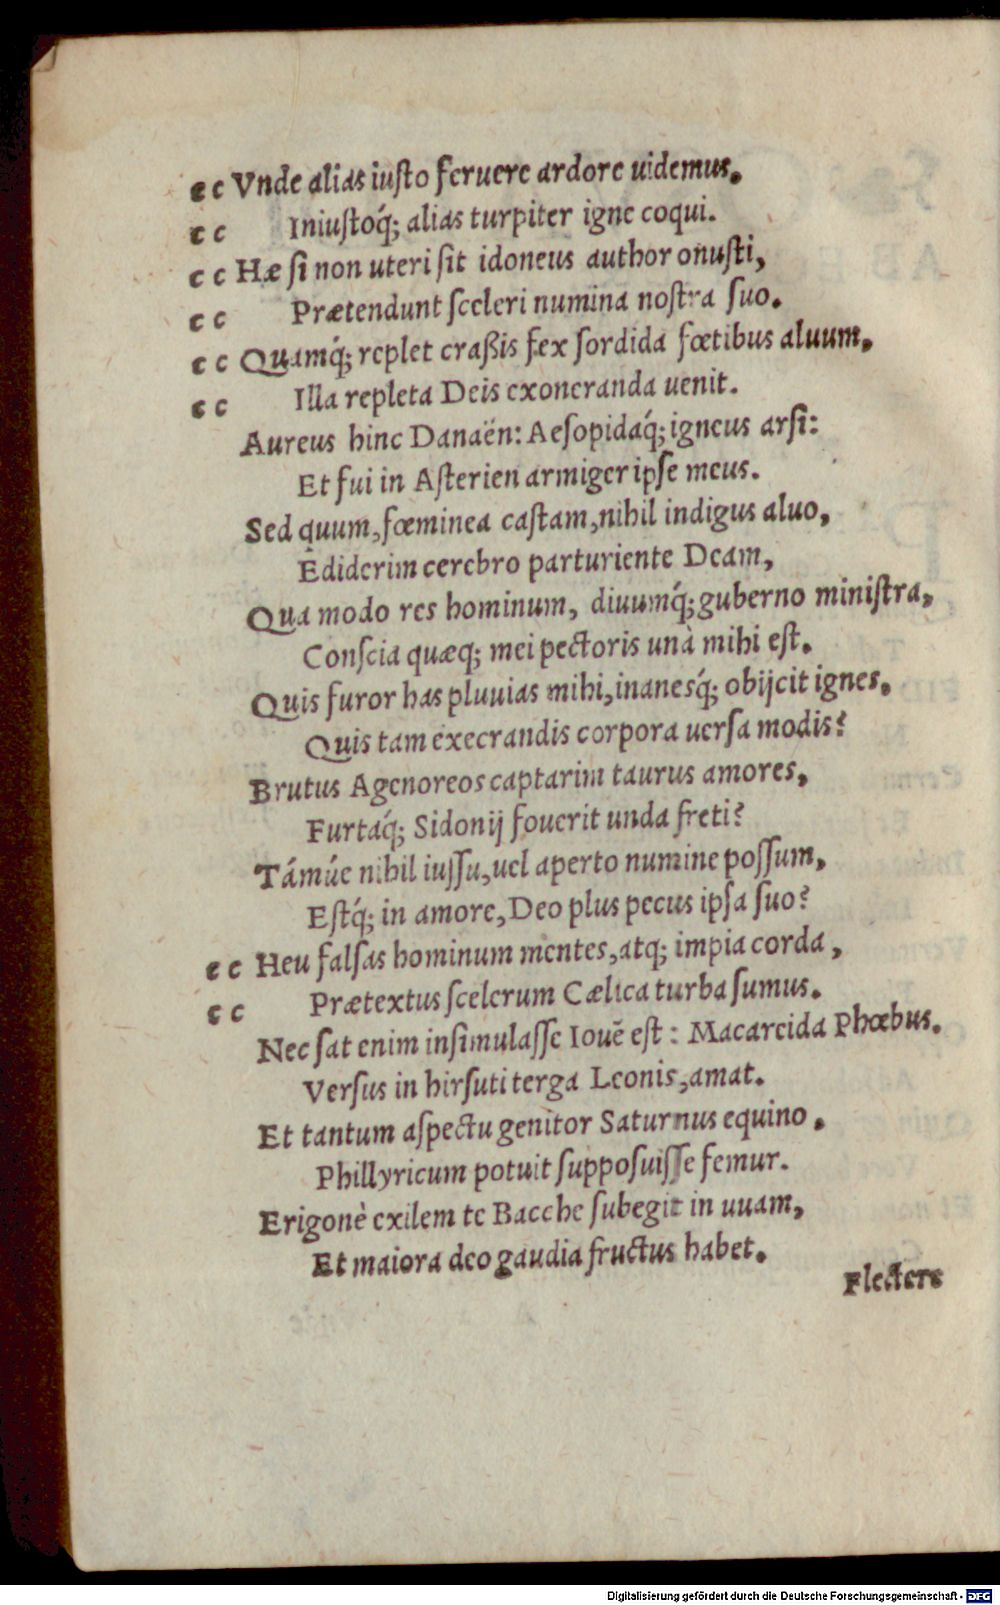 cc Vnde alias iuſto feruere ardore uidemus.
cc Iniuſtoq́; alias turpiter igne coqui.
cc Hæ ſi non uteri ſit idoneus author onuſti,
cc Prætendunt ſceleri numina noſtra ſuo.
cc Quamq́; replet craßis fex ſordida fœtibus aluum,
cc Illa repleta Deis exoneranda uenit.
Aureus hinc Danaën: Aeſopidaq́; igneus arſi:
Et fui in Aſterien armiger ipſe meus.
Sed quum, fœminea caſtam, nihil indigus aluo,
Ediderim cerebro parturiente Deam,
Qua modo res hominum, diuumq́; guberno miniſtra,
Conſcia quæq; mei pectoris unà mihi eſt.
Quis furor has pluuias mihi, inanesq́; obijcit ignes,
Quis tam execrandis corpora uerſa modis?
Brutus Agenoreos captarim taurus amores,
Furtaq́; Sidonij fouerit unda freti?
Támúe nihil iuſſu, uel aperto numine poſſum,
Eſtq́; in amore, Deo plus pecus ipſa ſuo?
cc Heu falſas hominum mentes, atq; impia corda,
cc Prætextus ſcelerum Cælica turba ſumus.
Nec ſat enim inſimulaſſe Iouē eſt: Macareida Phœbus.
Verſus in hirſuti terga Leonis, amat.
Et tantum aſpectu genitor Saturnus equino,
Phillyricum potuit ſuppoſuiſſe femur.
Erigonè exilem te Bacche ſubegit in uuam,
Et maiora deo gaudia fructus habet.
Flectere
Digitalisierung gefördert durch die Deutsche Forschungsgemeinschaft - DFG